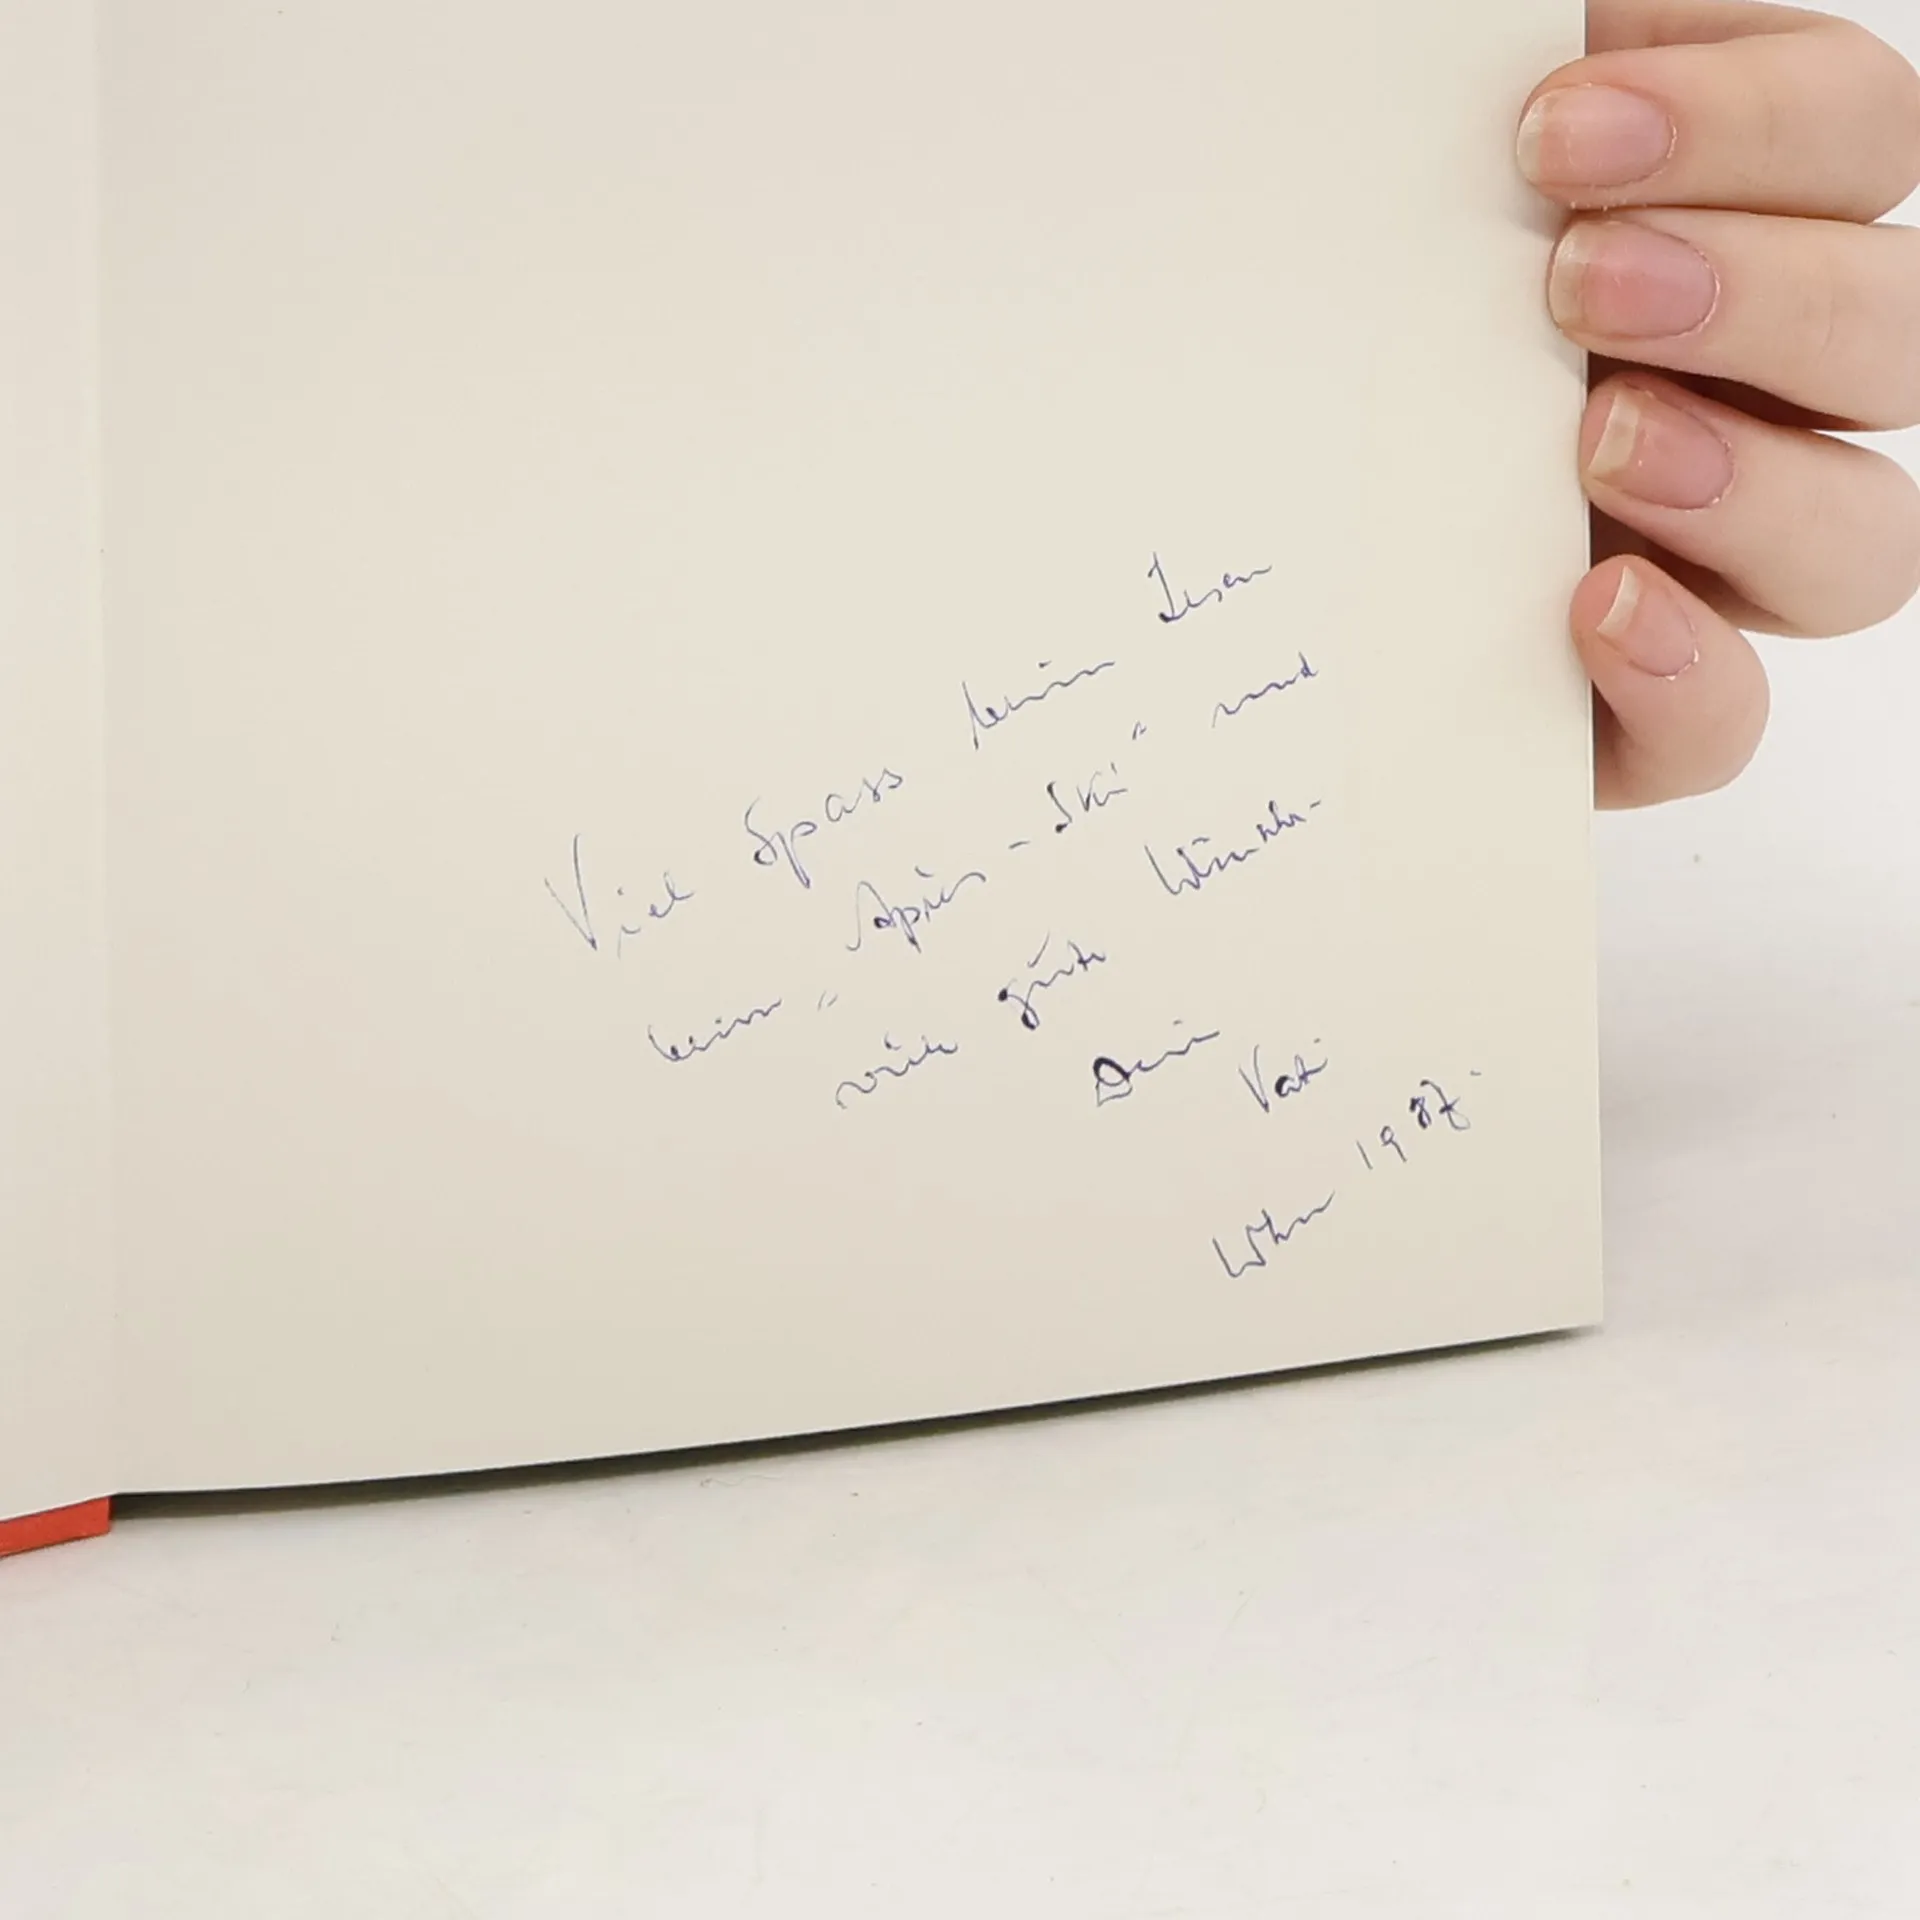 Viel Spass beim Lesen
beim "Après-Ski" und
viele gute Wünsche
Dein Vati
1987.